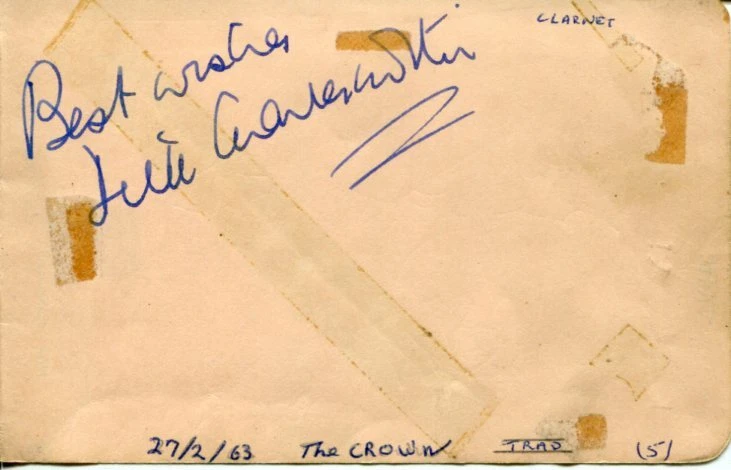 CLARNET
Best wishes
Dick Charlesworth
27/2/63 The CROWN TRAD (5)